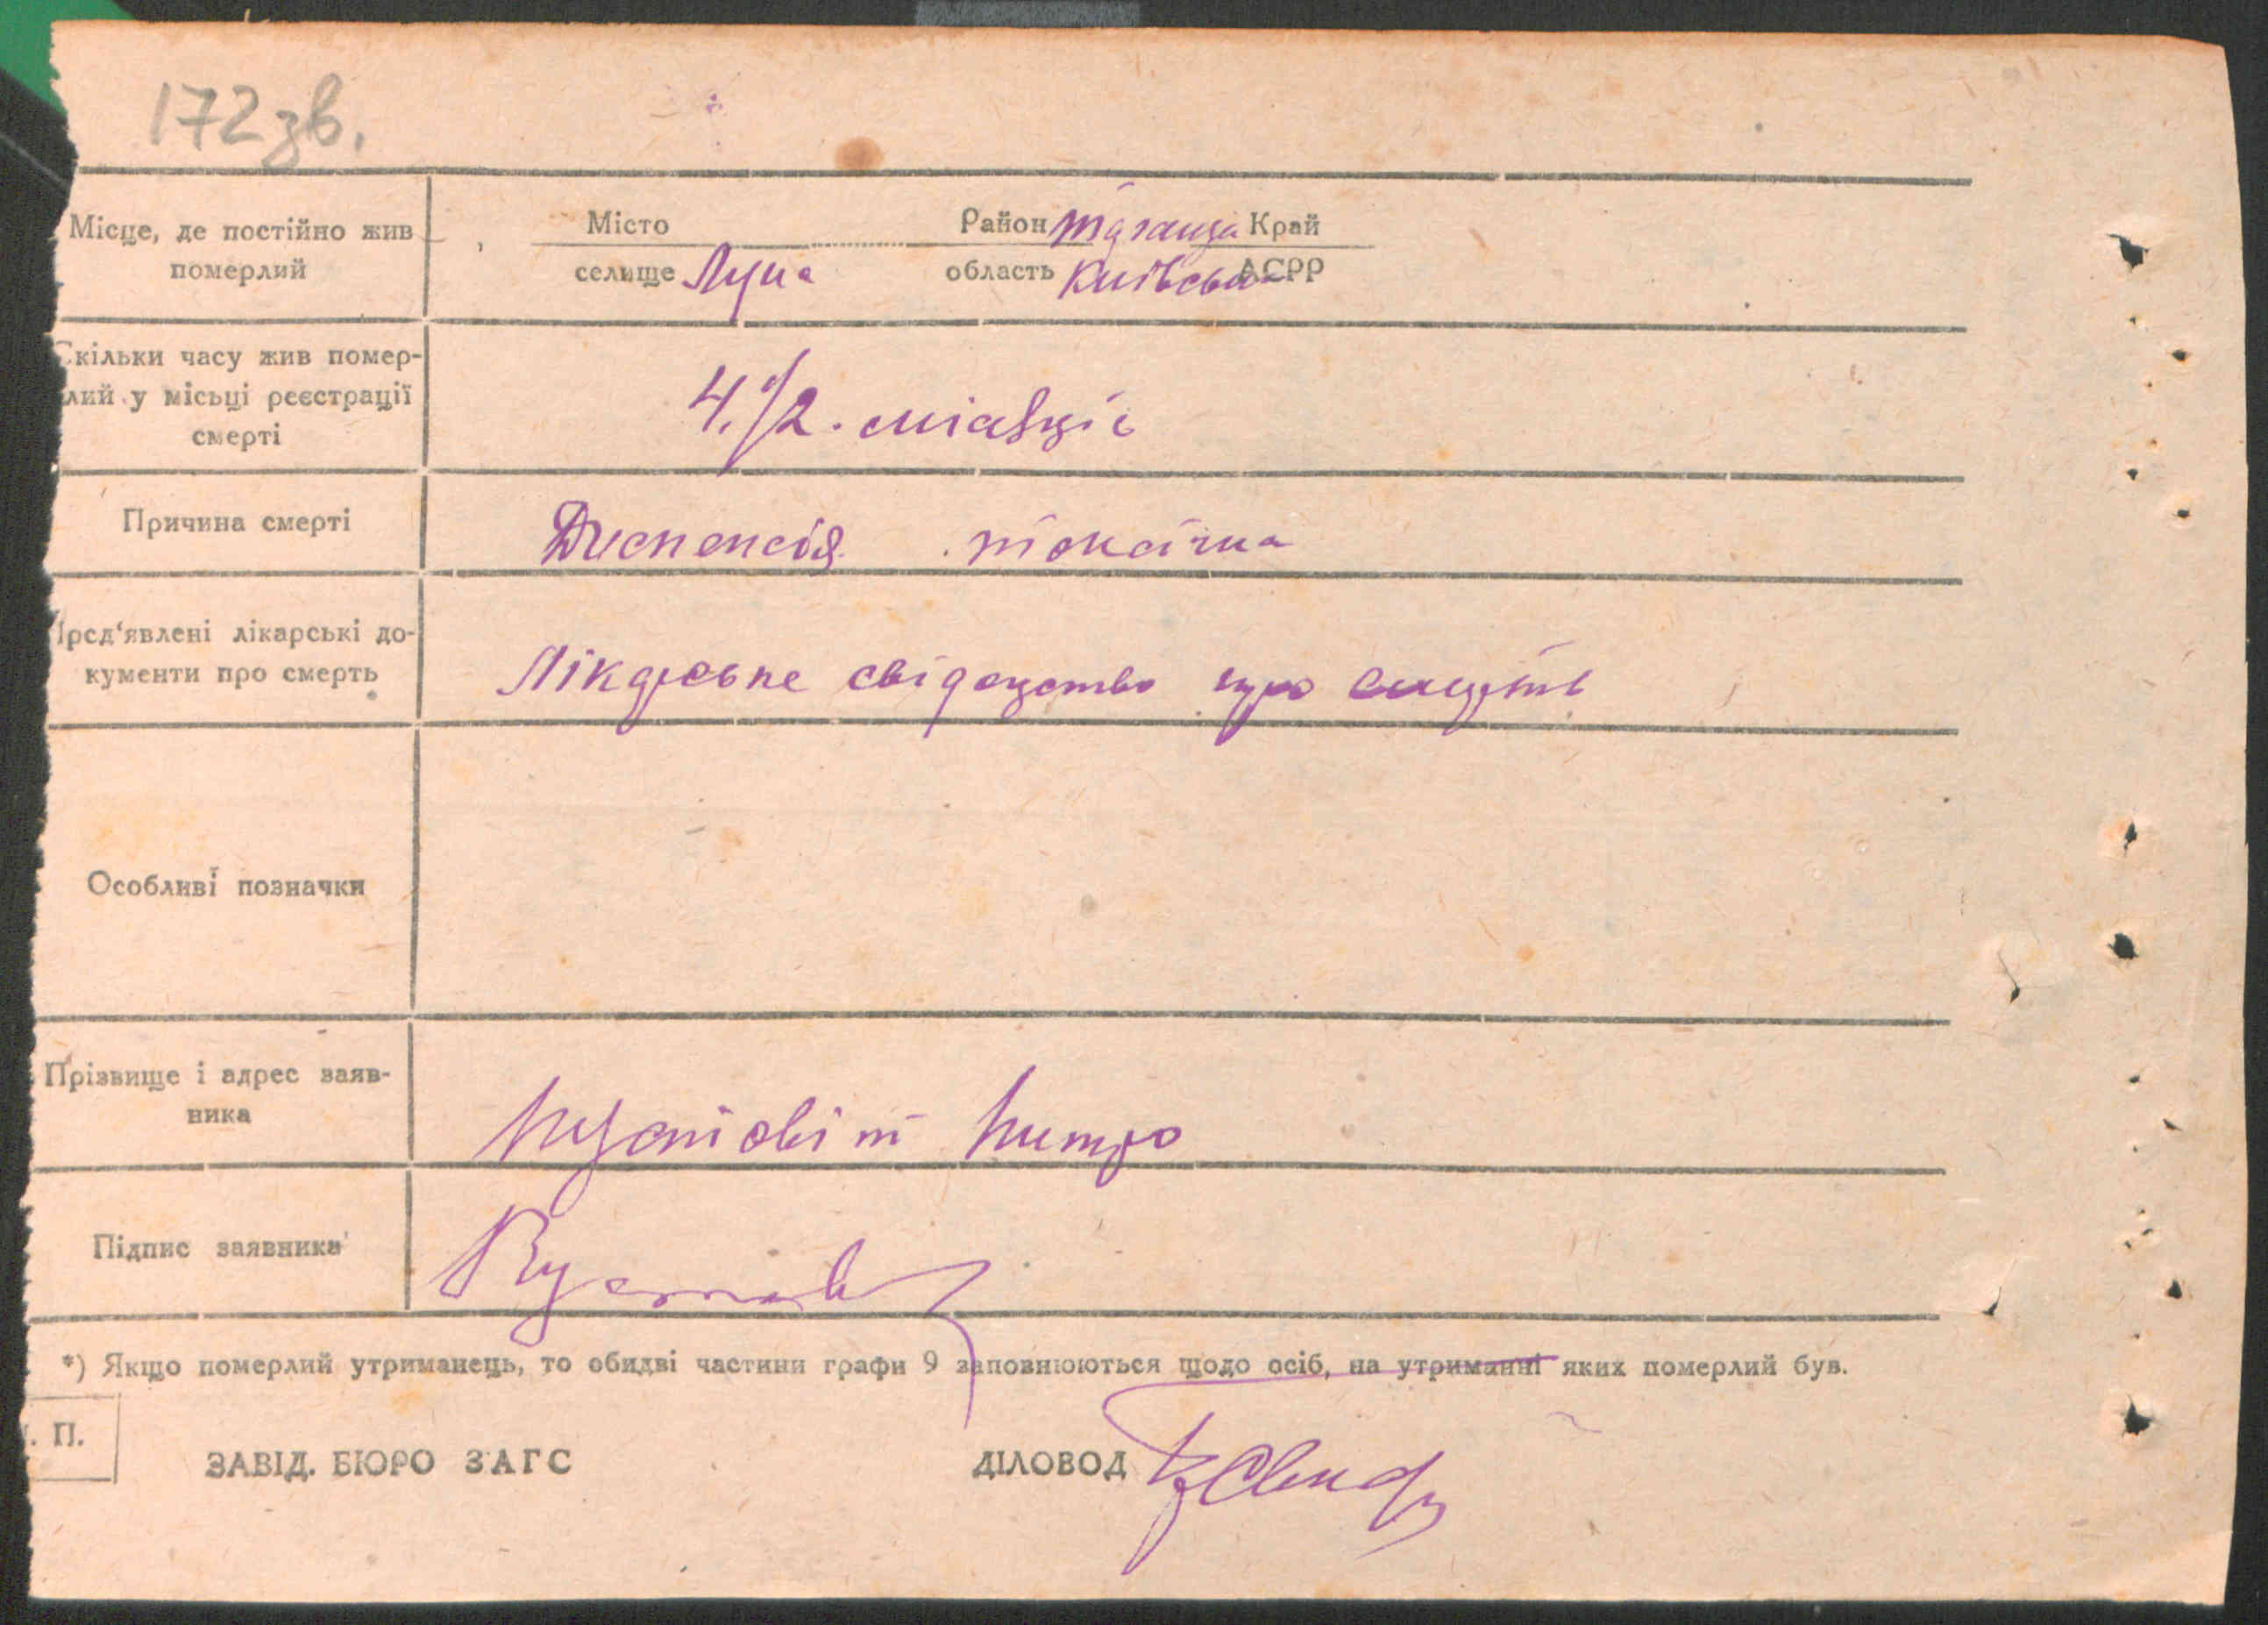 172 зв.
Місце, де постійно жив
померлий
Місто
Район Таращa Край
селище Лука
область Київська АСРР
Скільки часу жив помер-
лий у місьці реєстрації
смерті
4.1/2. місяців
Причина смерті
Диспепсія токсична
Пред'явлені лікарські до-
кументи про смерть
Лікарське свідоцтво про смерть
Особливі позначки
Прізвище і адрес заяв-
ника
Пустовіт
Підпис заявника
*) Якщо померлий утриманець, то обидві частини графи 9 заповнюються щодо осіб, на утриманні яких померлий був.
П.
ЗАВІД. БЮРО ЗАГС
ДІЛОВОД